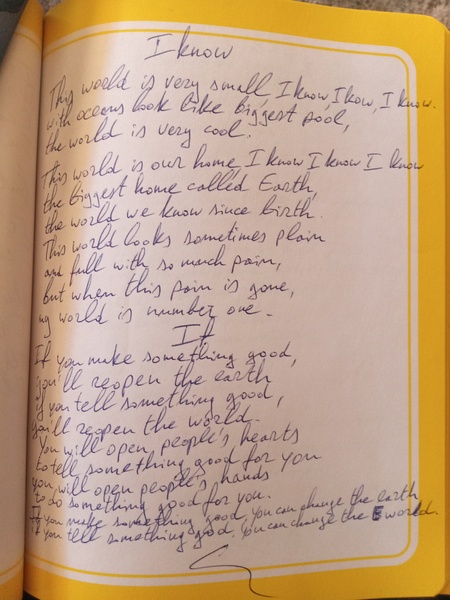 I know
This world is very small, I know, I kow, I know.
with oceans look like biggest pool,
the world is very cool.
This world is our home, I know I know I know
the biggest home called Earth,
the world we know since birth.
This world looks sometimes plain
and full with so much pain,
but when this pain is gone,
my world is number one.
If
If you make something good,
you'll reopen the earth
if you tell something good,
you'll reopen the world.
You will open people's hearts
to tell something good for you
you will open people's hands
to do something good for you.
If you make something good, you can change the earth
If you tell something good, you can change the world.